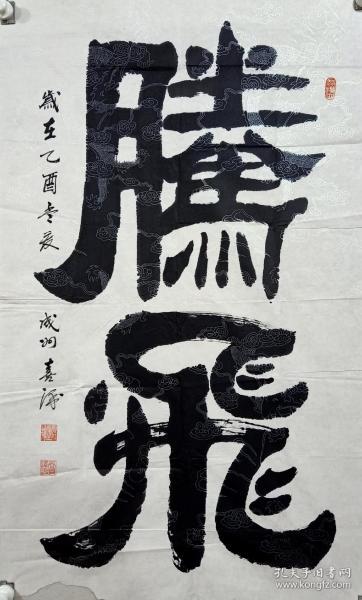 騰飛
歲在乙酉孟夏
成功喜源
孔夫子旧书网
www.kongfz.com